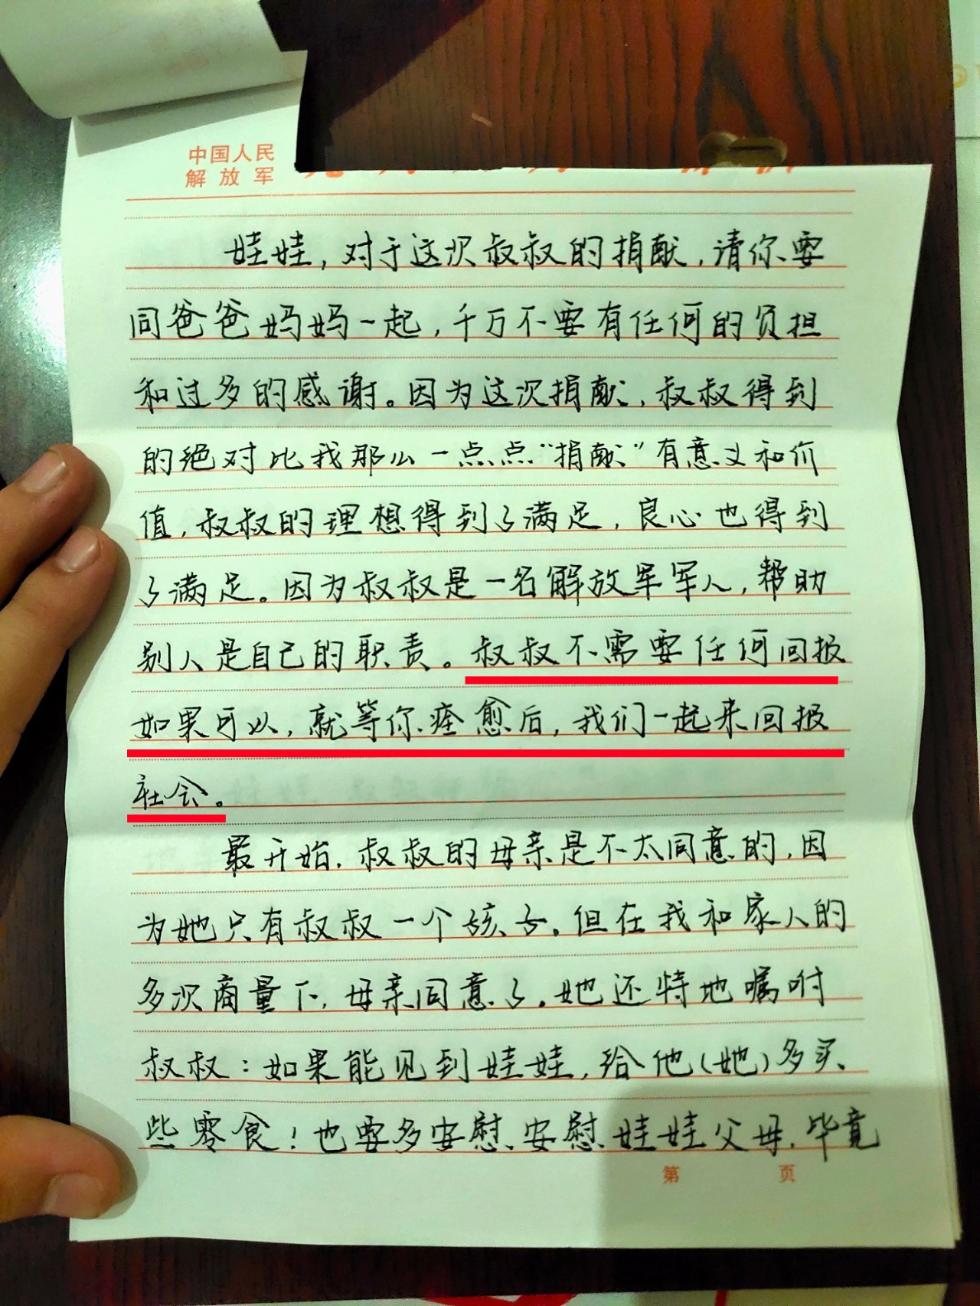 中国人民
解放军
娃娃，对于这次叔叔的捐献，请你要
同爸爸妈妈一起，千万不要有任何的负担
和过多的感谢。因为这次捐献，叔叔得到
的绝对比我那么一点点“捐献”有意义和价
值，叔叔的理想得到了满足，良心也得到
了满足。因为叔叔是一名解放军军人，帮助
别人是自己的职责。叔叔不需要任何回报
如果可以，就等你痊愈后，我们一起来回报
社会。
最开始，叔叔的母亲是不太同意的，因
为她只有叔叔一个孩子。但在我和家人的
多次商量下，母亲同意了。她还特地嘱咐
叔叔：如果能见到娃娃，给他(她)多买
些零食！也要多安慰、安慰娃娃父母，毕竟
第 页